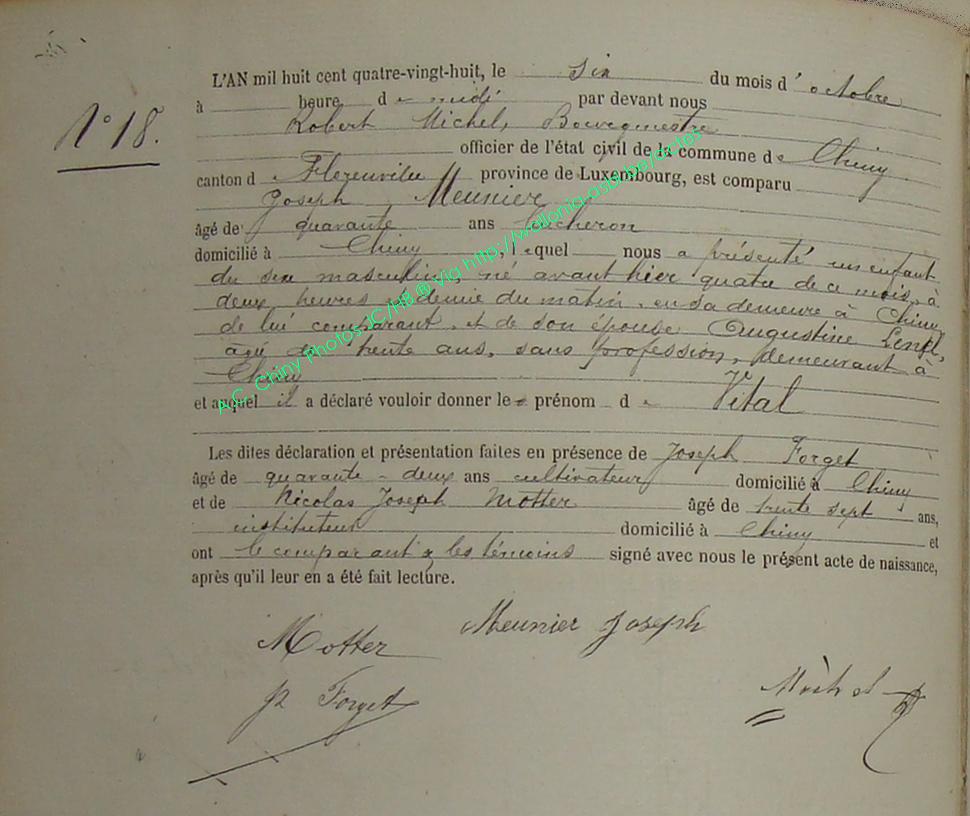 L'AN mil huit cent quatre-vingt-huit, le six du mois d' octobre
à heure de midi par devant nous
Robert Michel, Bourgmestre
officier de l'état civil de la commune de Chiny
canton d Florenville province de Luxembourg, est comparu
Joseph Meunier
âgé de quarante ans bûcheron
domicilié à Chiny, lequel nous a présenté un enfant
du sexe masculin, né avant hier quatre de ce mois, à
deux heures et demie du matin, en sa demeure à Chiny,
de lui comparant, et de son épouse Augustine
âgée de trente ans, sans profession, demeurant à
Chiny
et auquel il a déclaré vouloir donner le prénom de Vital
Les dites déclaration et présentation faites en présence de Joseph Forget
âgé de quarante-deux ans cultivateur domicilié à Chiny
et de Nicolas Joseph Motter âgé de trente sept ans,
instituteur domicilié à Chiny et
ont le comparant & les témoins signé avec nous le présent acte de naissance,
après qu'il leur en a été fait lecture.
N° 18.
Meunier Joseph
Motter
Forget
Michel
A.C. Chiny Photos JC/HB ® Via http://wallonia-asbl.be/actes